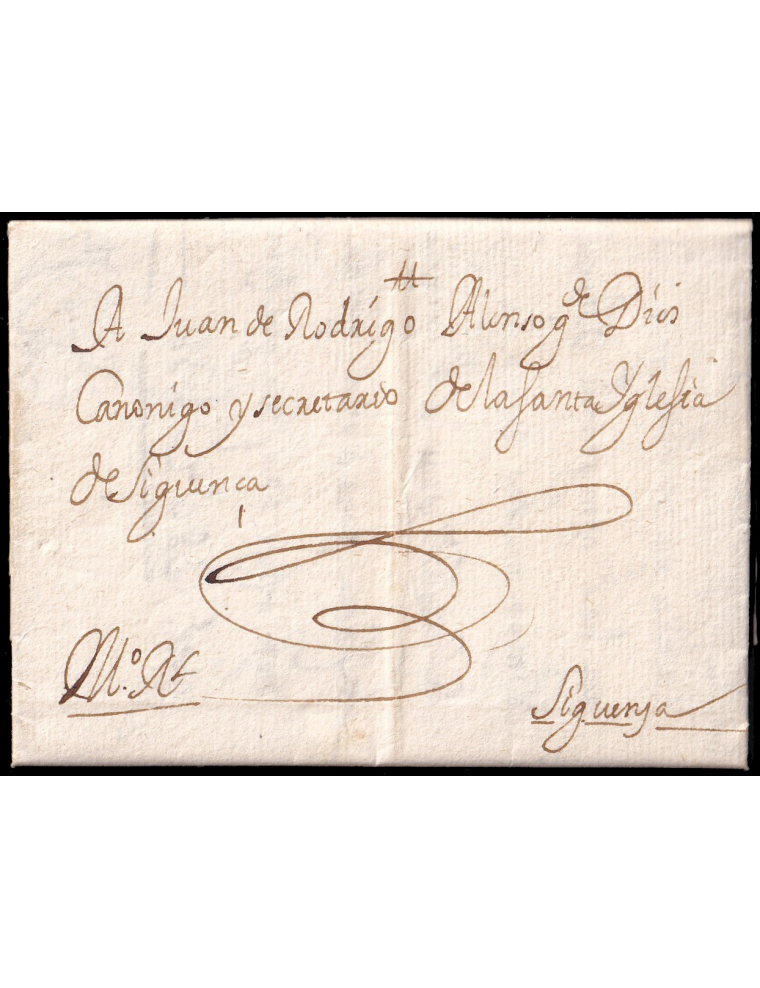 A Juan de Rodrigo Alonso g.de Dios
Canonigo y secretario de la santa Yglesia
de Siguenca
M.o R.l
Siguenza